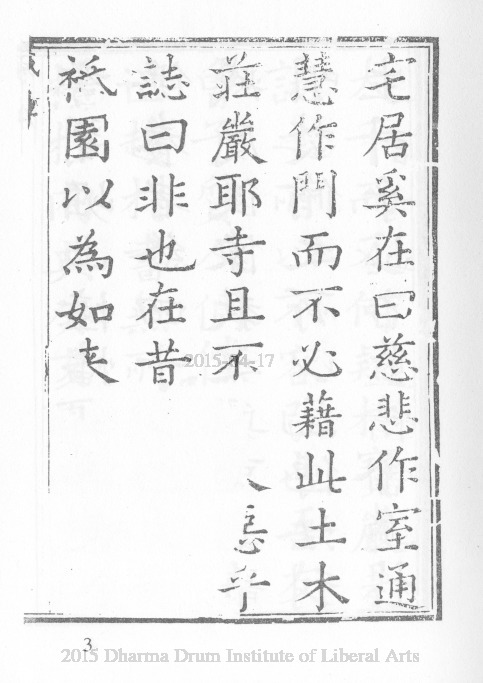 宅居奚在曰慈悲作室通
慧作門而不必藉此土木
莊嚴耶寺且不乎
誌曰非也在昔
祇園以為如
2015-04-17
3
2015 Dharma Drum Institute of Liberal Arts